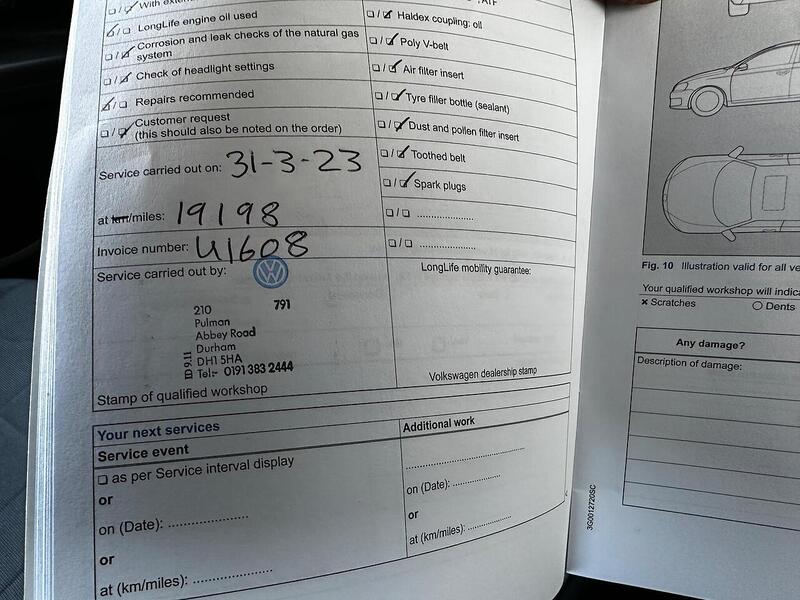 LongLife engine oil used
Corrosion and leak checks of the natural gas
system
Check of headlight settings
Repairs recommended
Customer request
(this should also be noted on the order)
Service carried out on: 31-3-23
at km/miles: 19198
Invoice number: 41608
Service carried out by:
VW
210 791
Pulman
Abbey Road
Durham
DH1 5HA
Tel:- 0191 383 2444
ID 9.11
Stamp of qualified workshop
Haldex coupling: oil
Poly V-belt
Air filter insert
Tyre filler bottle (sealant)
Dust and pollen filter insert
Toothed belt
Spark plugs
LongLife mobility guarantee:
Volkswagen dealership stamp
Your next services
Service event
as per Service interval display
or
on (Date): ....................
or
at (km/miles): ....................
Additional work
..............................
on (Date): ............
or
at (km/miles): ...........
3G0012720SC
Fig. 10 Illustration valid for all ve
Your qualified workshop will indica
× Scratches O Dents
Any damage?
Description of damage: